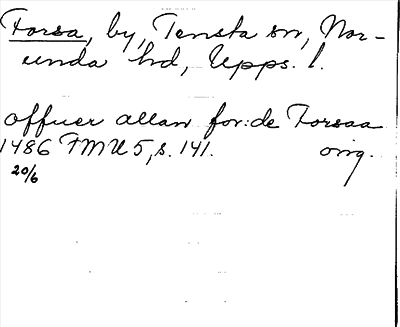 Forsa, by, Tensta sn, Nor-
unda hd, Upps. l.
offuer allan for:de Forsaa
1486 FMU 5, s. 141. orig.
20/6